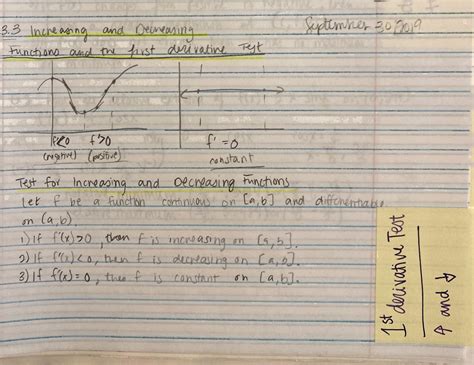 3.3 Increasing and Decreasing
September 30, 2019
Functions and the first derivative Test
f'<0 f'>0
(negative) (positive)
f' = 0
constant
Test for Increasing and Decreasing Functions
Let f be a function continuous on [a,b] and differentiable
on (a,b).
1) If f'(x)>0, then f is increasing on [a,b].
2) If f'(x)<0, then f is decreasing on [a,b].
3) If f'(x)=0, then f is constant on [a,b].
1st derivative Test
↑ and ↓